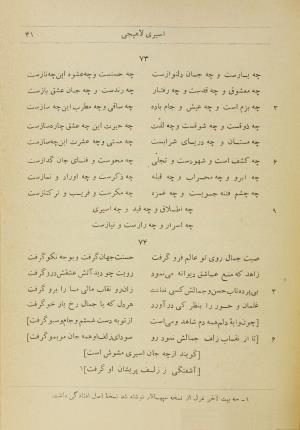 ۴۱ اسیری لاهیجی
۷۳
چه یارست و چه جان دلنوازست چه حسنست و چه عشوه این چه نازست
چه معشوق و چه قدست و چه رفتار چه رندست و چه جان عشق بازست
۳ چه بزم است و چه عیش و چه جام باده چه ساقی و چه مطرب این چه سازست
چه ذوقست و چه شوقست و چه لذت چه حیرت این چه عشق چاره سازست
چه مستان و چه دریای شرابست چه مستی و چه عشرت این چه سازست
۶ چه کشف است و شهودست و تجلی چه محوست و فنای جان گدازست
چه ابرو و چه محراب و چه قبله چه ذکرست و چه اوراد و نمازست
چه چشم فتنه جویست و چه غمزه چه مکرست و فریب و ترکتازست
۹ چه اطلاق و چه قید و چه اسیری
چه اسرار و چه رازست و نیازست
۷۴
صیت جمال روی تو عالم فرو گرفت حسنت جهان گرفت و بوجه نکو گرفت
زاهد که منع عاشق دیوانه می نمود رویت چو دید آتش عشقش درو گرفت
۳ بی پرده تاب حسن و جمالش کسی نداشت زان رو نقاب مالی ما را برو گرفت
غلمان و حور را بنظر کی درآورد هر دل که با جمال رخ یار خو گرفت
[چون وایۀ دلم همه دم شاهد و می است از توبه دست شستم و جام و سبو گرفت]
۶ [تا از نقاب زلف جمالش نمود رو سودای زلف او همه جان مو بمو گرفت]
[گویند از چه جان اسیری مشوش است]
[آشفتگی ز زلف پریشان او گرفت۱]
۱- سه بیت آخر غزل از نسخه سپهسالار نوشته شد نسخۀ اصل افتادگی داشت.